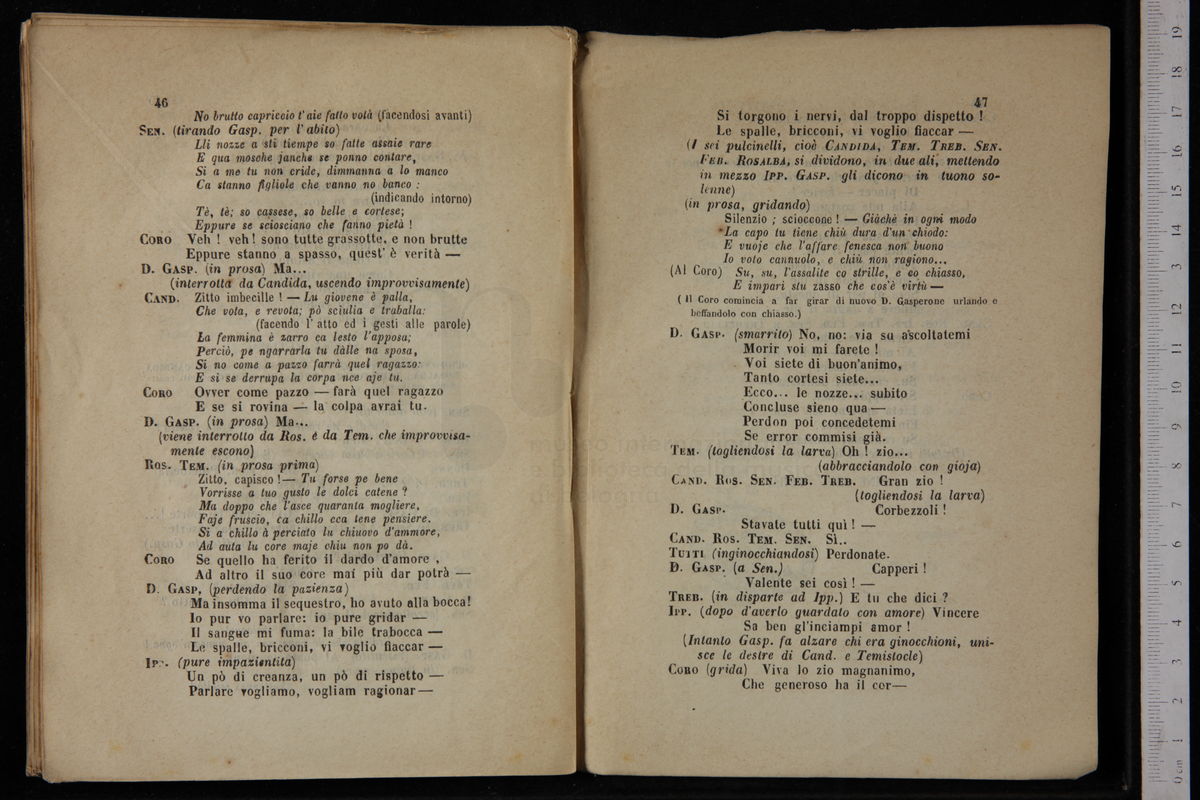 46
No brutto capriccio t'aie fatto votà (facendosi avanti)
SEN. (tirando Gasp. per l'abito)
Lli nozze a sti tiempe so fatte assaie rare
E qua mosche janche se ponno contare,
Si a me tu non cride, dimmanna a lo manco
Ca stanno figliole che vanno no banco :
(indicando intorno)
Tè, tè; so cassese, so belle e cortese;
Eppure se sciosciano che fanno pietà !
CORO Veh ! veh ! sono tutte grassotte, e non brutte
Eppure stanno a spasso, quest' è verità —
D. GASP. (in prosa) Ma...
(interrotta da Candida, uscendo improvvisamente)
CAND. Zitto imbecille ! — Lu giovene è palla,
Che vota, e revota; pò sciulia e traballa:
(facendo l'atto ed i gesti alle parole)
La femmina è zarro ca lesto l'apposa;
Perciò, pe ngarrarla tu dàlle na sposa,
Si no come a pazzo farrà quel ragazzo:
E si se derrupa la corpa nce aje tu.
CORO Ovver come pazzo — farà quel ragazzo
E se si rovina — la colpa avrai tu.
D. GASP. (in prosa) Ma...
(viene interrotto da Ros. è da Tem. che improvvisa-
mente escono)
ROS. TEM. (in prosa prima)
Zitto, capisco !— Tu forse pe bene
Vorrisse a tuo gusto le dolci catene ?
Ma doppo che l'asce quaranta mogliere,
Faje fruscio, ca chillo cca tene pensiere.
Si a chillo à perciato lu chiuovo d'ammore,
Ad auta lu core maje chiu non po dà.
CORO Se quello ha ferito il dardo d'amore ,
Ad altro il suo core mai più dar potrà —
D. GASP, (perdendo la pazienza)
Ma insomma il sequestro, ho avuto alla bocca!
Io pur vo parlare: io pure gridar —
Il sangue mi fuma: la bile trabocca —
Le spalle, bricconi, vi voglio fiaccar —
IPP. (pure impazientita)
Un pò di creanza, un pò di rispetto —
Parlare vogliamo, vogliam ragionar —
47
Si torgono i nervi, dal troppo dispetto !
Le spalle, bricconi, vi voglio fiaccar —
(I sei pulcinelli, cioè CANDIDA, TEM. TREB. SEN.
FEB. ROSALBA, si dividono, in due ali, mettendo
in mezzo IPP. GASP. gli dicono in tuono so-
lenne)
(in prosa, gridando)
Silenzio ; scioccone ! — Giàchè in ogni modo
La capo tu tiene chiù dura d'un chiodo:
E vuoje che l'affare fenesca non buono
Io voto cannuolo, e chiù non ragiono...
(Al Coro) Su, su, l'assalite co strille, e co chiasso,
E impari stu zasso che cos'è virtù —
( Il Coro comincia a far girar di nuovo D. Gasperone urlando e
beffandolo con chiasso.)
D. GASP. (smarrito) No, no: via su ascoltatemi
Morir voi mi farete !
Voi siete di buon'animo,
Tanto cortesi siete...
Ecco... le nozze... subito
Concluse sieno qua —
Perdon poi concedetemi
Se error commisi già.
TEM. (togliendosi la larva) Oh ! zio...
(abbracciandolo con gioja)
CAND. ROS. SEN. FEB. TREB. Gran zio !
(togliendosi la larva)
D. GASP. Corbezzoli !
Stavate tutti quì ! —
CAND. ROS. TEM. SEN. Sì..
TUTTI (inginocchiandosi) Perdonate.
D. GASP. (a Sen.) Capperi !
Valente sei così ! —
TREB. (in disparte ad Ipp.) E tu che dici ?
IPP. (dopo d'averlo guardato con amore) Vincere
Sa ben gl'inciampi amor !
(Intanto Gasp. fa alzare chi era ginocchioni, uni-
sce le destre di Cand. e Temistocle)
CORO (grida) Viva lo zio magnanimo,
Che generoso ha il cor—